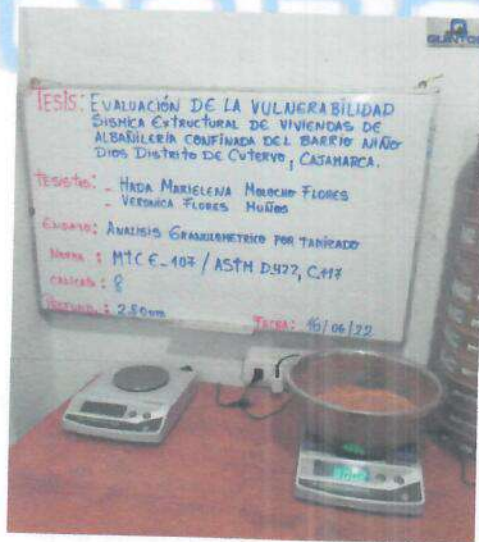 TESIS: EVALUACIÓN DE LA VULNERABILIDAD
SISMICA EXTRUCTURAL DE VIVIENDAS DE
ALBAÑILERÍA CONFINADA DEL BARRIO NIÑO
DIOS DISTRITO DE CUTERVO, CAJAMARCA.
TESISTAS: - HADA MARIELENA MOLOCHO FLORES
- VERONICA FLORES MUÑOS
ENSAYO: ANALISIS GRANULOMETRICO POR TAMIZADO
NORMA : MTC E-107 / ASTM D422, C117
CALICATA : 8
: 2.80
FECHA: /06/22